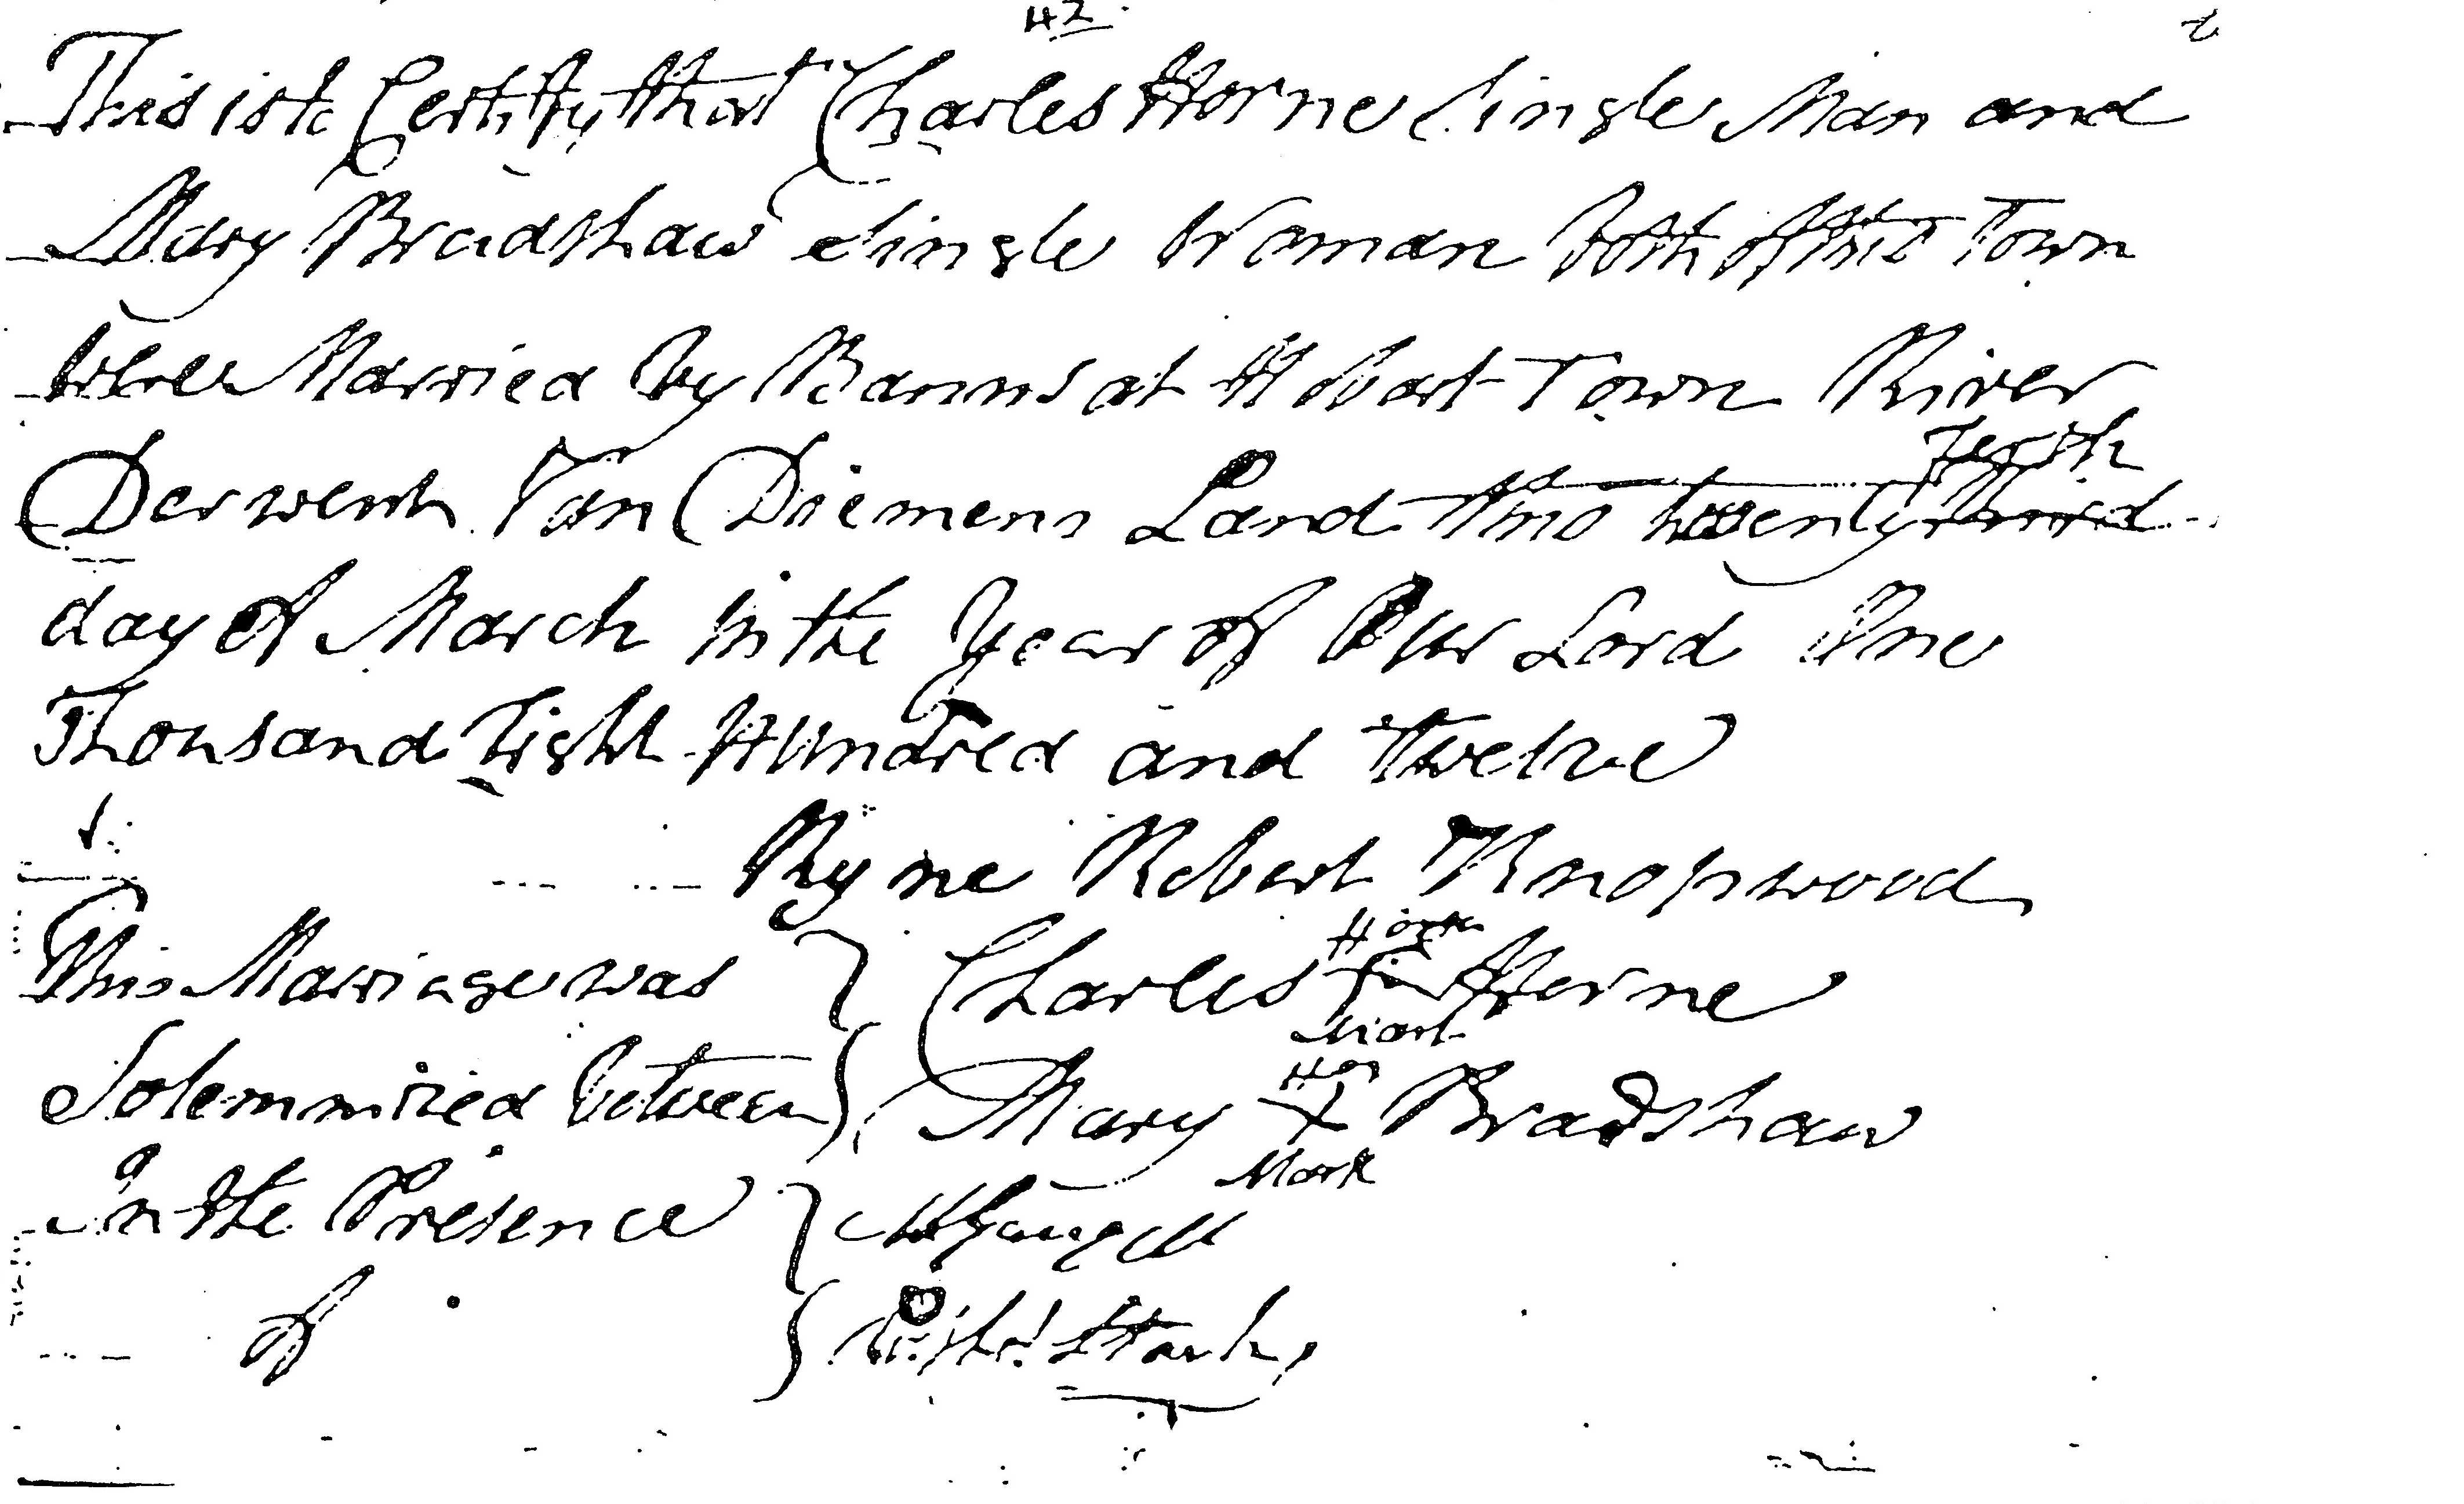 42
This is to Certify that Charles Horne Single Man and
Mary Bradshaw Single Woman both of this Town
were Married by Banns at Hobart Town River
Derwent Van Diemens Land this twenty third
day of March in the Year of Our Lord One
Thousand Eight Hundred and Twelve
By me Robert Knopwood
This Marriage was
Charles Horne
Mark
Solemnized between
Her
Mary X Bradshaw
Mark
In the Presence
of